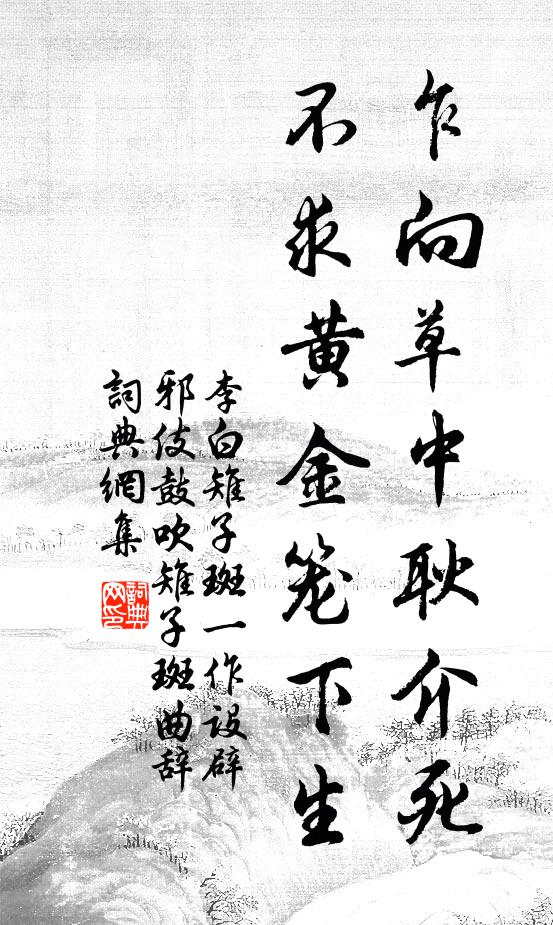 乍向草中耿介死
不求黄金笼下生
李白雉子斑一作设辟
邪伎鼓吹雉子斑曲辞
詞典網集
詞典
网印